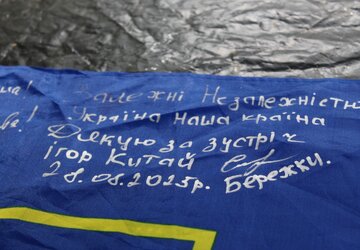 Залежні Незалежністю
Україна наша країна
Дякую за зустріч
ігор Китай
28.08.2025р. Бережки.